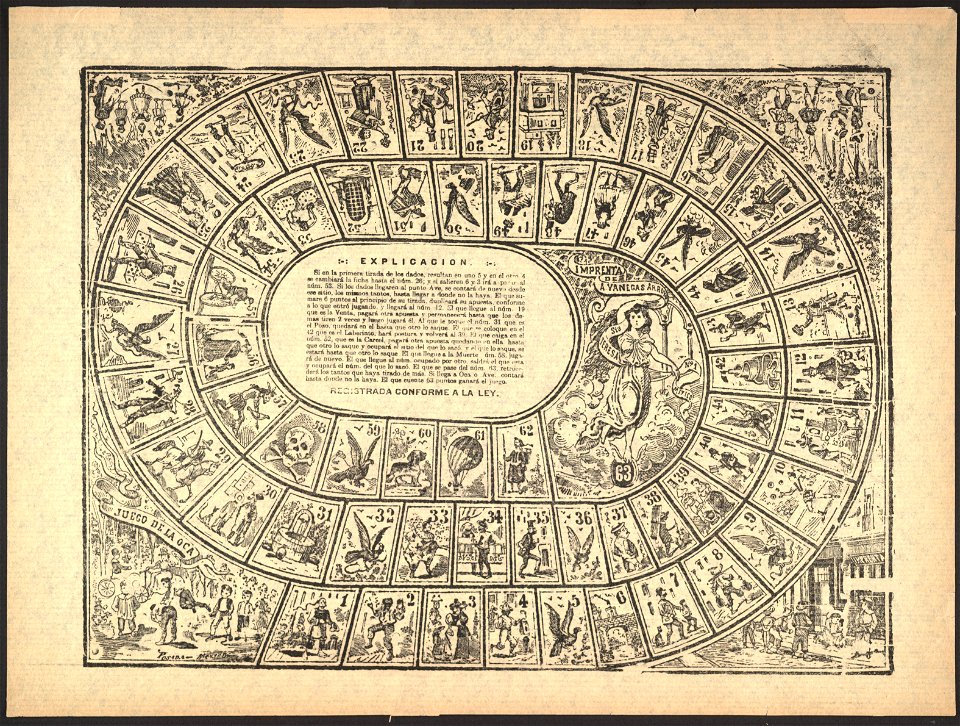 :-: EXPLICACION. :-:
Si en la primera tirada de los dados, resultan en uno 5 y en el otro 4
se cambiará la ficha hasta el núm. 26; y si salieren 6 y 3 irá a parar al
núm. 53. Si los dados llegaren al punto Ave, se contará de nuevo desde
ese sitio, los mismos tantos, hasta llegar a donde no la haya. El que su-
mare 6 puntos al principio de su tirada, duplicará su apuesta, conforme
a lo que entró jugando y llegará al núm. 12. El que llegue al núm. 19
que es la Venta, pagará otra apuesta y permanecerá hasta que los de
mas tiren 2 veces y luego jugará él. Al que le toque el núm. 31 que es
el Poso, quedará en el hasta que otro lo saque. El que se coloque en el
42 que es el Laberinto, hará postura y volverá al 39. El que caiga en el
núm. 52, que es la Carcel, pagará otra apuesta quedando en ella hasta
que otro lo saque y ocupará el sitio del que lo sacó, y el que lo saque, se
estará hasta que otro lo saque. El que llegue a la Muerte núm. 58, juga-
rá de nuevo. El que llegue al núm. ocupado por otro, saldrá el que está
y ocupará el núm. del que lo sacó. El que se pase del núm. 63, retroce-
derá los tantos que haya tirado de más. Si llega a Oca o Ave, contará
hasta donde no la haya. El que cuente 63 puntos ganará el juego.
REGISTRADA CONFORME A LA LEY.
IMPRENTA
DE
A. VANEGAS ARR
JUEGO DE LA OCA
1
2
3
4
5
6
7
8
9
10
11
12
17
18
19
20
21
22
23
24
29
30
31
32
33
34
35
36
37
38
39
40
42
46
47
48
49
50
51
52
53
58
59
60
61
62
63